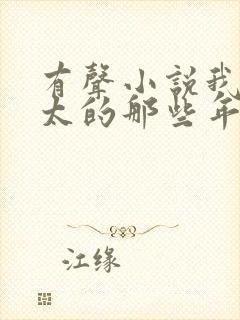 有聲小説我
太的那些年
江缘